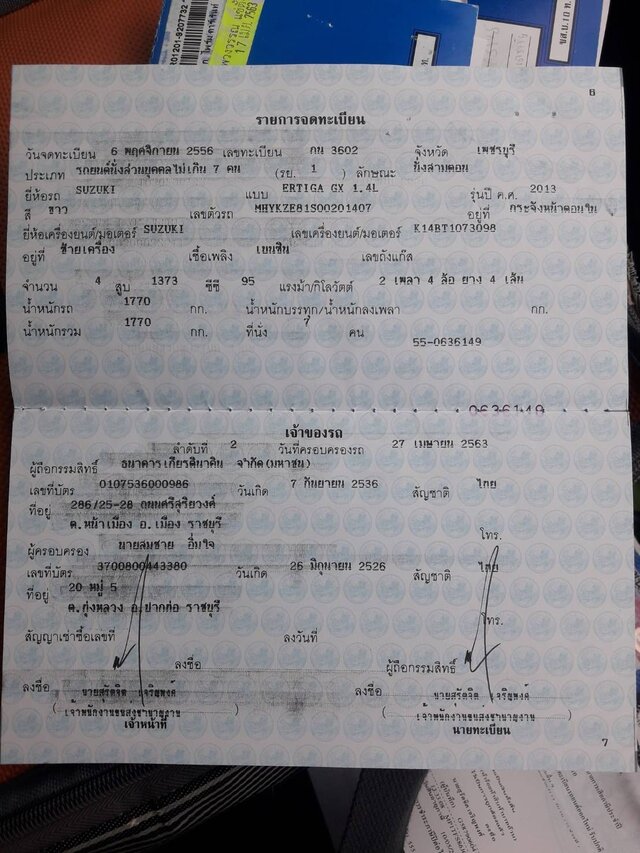 R01201-9207732
17 เม.ย. 2563
ขส.บ.10 ท.
6
รายการจดทะเบียน
วันจดทะเบียน 6 พฤศจิกายน 2556 เลขทะเบียน กน 3602 จังหวัด เพชรบุรี
ประเภท รถยนต์นั่งส่วนบุคคลไม่เกิน 7 คน (รย. 1 ) ลักษณะ นั่งสามตอน
ยี่ห้อรถ SUZUKI แบบ ERTIGA GX 1.4L รุ่นปี ค.ศ. 2013
สี ขาว เลขตัวรถ MHYKZE81S00201407 อยู่ที่ กระจังหน้าตอนใน
ยี่ห้อเครื่องยนต์/มอเตอร์ SUZUKI เลขเครื่องยนต์/มอเตอร์ K14BT1073098
อยู่ที่ ซ้ายเครื่อง เชื้อเพลิง เบนซิน เลขถังแก๊ส
จำนวน 4 สูบ 1373 ซีซี 95 แรงม้า/กิโลวัตต์ 2 เพลา 4 ล้อ ยาง 4 เส้น
น้ำหนักรถ 1770 กก. น้ำหนักบรรทุก/น้ำหนักลงเพลา กก.
น้ำหนักรวม 1770 กก. ที่นั่ง 7 คน
55-0636149
0636149
เจ้าของรถ
ลำดับที่ 2 วันที่ครอบครองรถ 27 เมษายน 2563
ผู้ถือกรรมสิทธิ์ ธนาคารเกียรตินาคิน จำกัด(มหาชน)
เลขที่บัตร 0107536000986 วันเกิด 7 กันยายน 2536 สัญชาติ ไทย
ที่อยู่ 286/25-28 ถนนศรีสุริยวงศ์
ต.หน้าเมือง อ.เมือง ราชบุรี
โทร.
ผู้ครอบครอง นายสมชาย อิ่มใจ
เลขที่บัตร 3700800443380 วันเกิด 26 มิถุนายน 2526 สัญชาติ ไทย
ที่อยู่ 20 หมู่ 5
ต.ทุ่งหลวง อ.ปากท่อ ราชบุรี
โทร.
สัญญาเช่าซื้อเลขที่ ลงวันที่
ลงชื่อ ผู้ถือกรรมสิทธิ์
ลงชื่อ ลงชื่อ
นายสุรัตจิต เจริญพงศ์ นายสุรัตจิต เจริญพงศ์
(เจ้าพนักงานขนส่งชำนาญงาน) (เจ้าพนักงานขนส่งชำนาญงาน)
เจ้าหน้าที่ นายทะเบียน
7